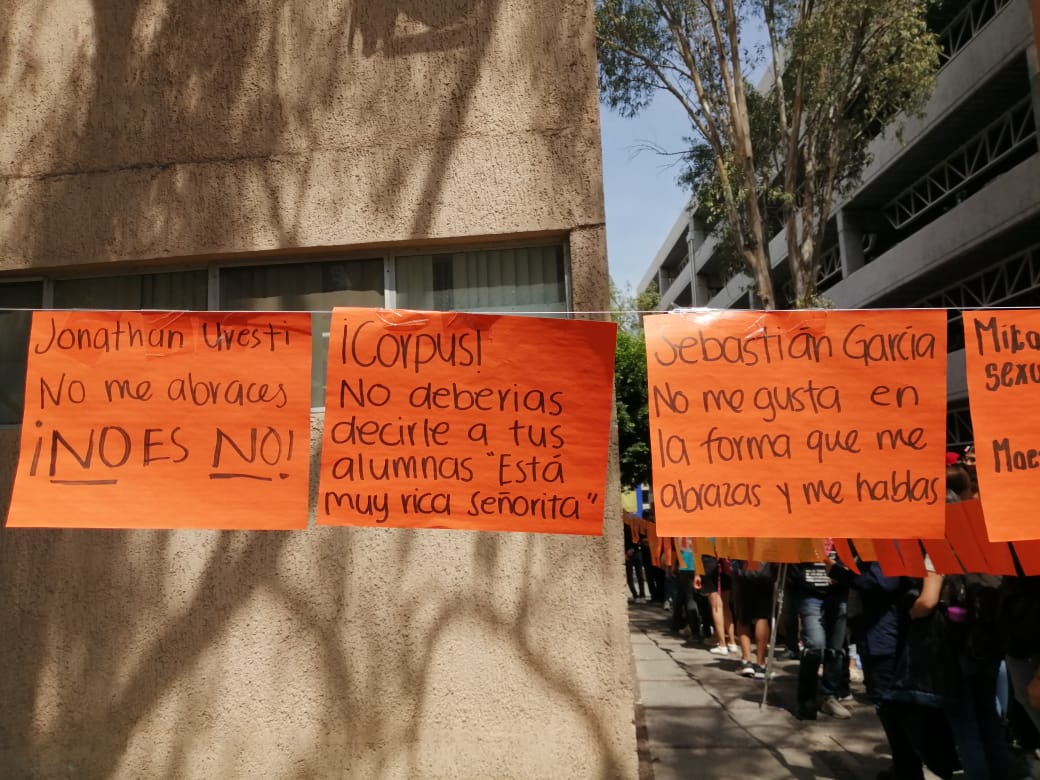 Jonathan Uresti
No me abraces
¡NO ES NO!
¡Corpus!
No deberias
decirle a tus
alumnas "Está
muy rica señorita"
Sebastián García
No me gusta en
la forma que me
abrazas y me hablas